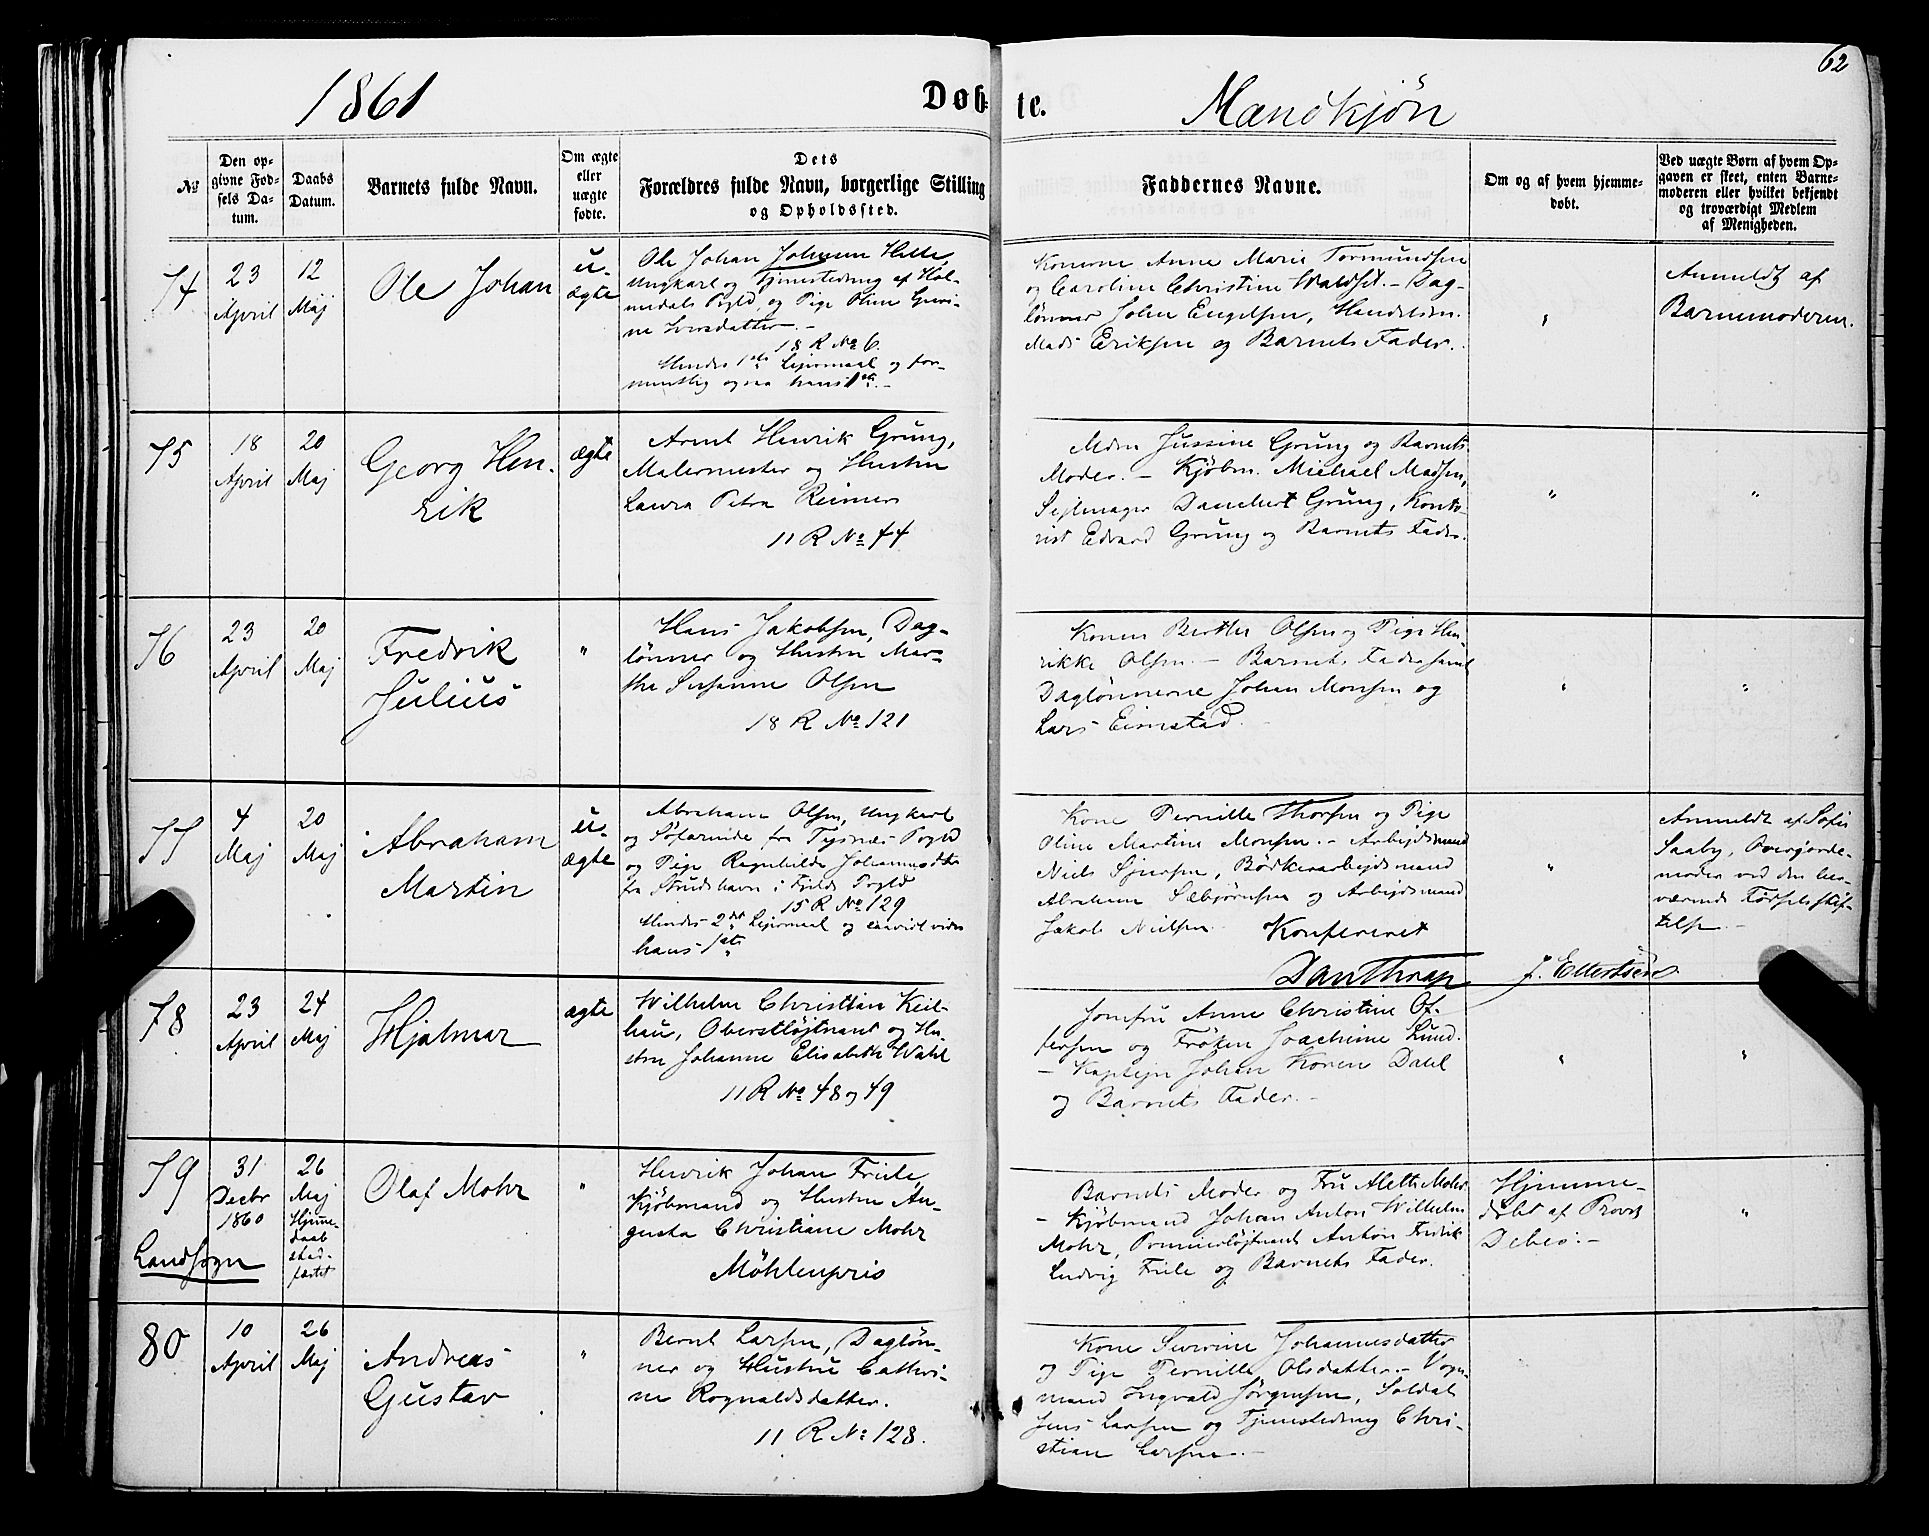 62
1861
Døb-
te.
Mandkjøn
No
Den op-
givne Fød-
sels Da-
tum.
Daabs
Datum.
Barnets fulde Navn.
Om ægte
eller
uægte
fødte.
Dets
Forældres fulde Navn, borgerlige Stilling
og Opholdssted.
Faddernes Navne.
Om og af hvem hjemme-
døbt.
Ved uægte Børn af hvem Op-
gaven er skeet, enten Barne-
moderen eller hvilket bekjendt
og troværdigt Medlem
af Menigheden.
74
23
April
12
Maj
Ole Johan
u-
ægte
Ole Johan Johnsen Helle,
Ungkarl og Tjenestedreng af Hol-
medals Pgld, og Pige Oline
ne Iversdatter. -
18 R No 6.
Hendes 1ste Lejermaal og for-
mentlig ogsaa hans 1ste. -
Konerne Anne Marie Tormundsen
og Caroline Christine - Dag-
lønner John Engelsen,
Mads Eriksen og Barnets Fader.
"
Anmeldt af
Barnemoderen.
75
18
April
20
Maj
Georg Hen-
rik
ægte
Arnt Henrik Grung,
Malermester og Hustru
Laura Petra Reimers
11 R No 44
Mdm Jussine Grung og Barnets
Moder. - Kjøbm. Michael Madsen,
Sejlmager Danchert Grung, Konto-
rist Edvard Grung og Barnets Fader.
"
"
76
23
April
20
Maj
Fredrik
Julius
"
Hans Jakobsen, Dag-
lønner og Hustru Mar-
the Susanne Olsen
18 R No 121
Konen Berthe Olsen og Pige Hen-
rikke Olsen. - Barnets Fader samt
Daglønnerne Johan Monsen og
Lars Eimstad.
"
"
77
4
Maj
20
Maj
Abraham
Martin
u-
ægte
Abraham Olsen, Ungkarl
og Søfarende fra Tysnæs Pgld
og Pige Ragnhilde Johannesdtr
fra Strudshavn i Fjelds Pgld
15 R No 129
Hendes 2det Lejermaal og saavidt vides
hans 1ste
Kone Pernille Thorsen og Pige
Oline Martine Monsen. - Arbejdsmand
Niels Sjursen, Bødkerarbejdsmand
Abraham Sæbjørnsen og Arbejdsmand
Jakob Nielsen.
Konfereret
Dan Thrap
J. Ellertsen
"
Anmeldt af Sofie
Saaby, Overgjorde-
moder ved den her-
værende Fødselsstif-
telse. -
78
23
April
24
Maj
Hjalmar
ægte
Wilhelm Christian Keil-
hau, Oberstløjtnant og Hu-
stru Johanne Elisabeth Wahl
11 R No 48 og 49
Jomfru Anne Christine Of-
tersen og Frøken Joachime Lund.
- Kaptejn Johan Koren Dahl
og Barnets Fader. -
"
"
79
Landsogn
31
Decbr
1860
26
Maj
Hjemme-
daab
stad-
fæstet
Olaf Mohr
"
Henrik Johan Friele
Kjøbmand og Hustru Au-
gusta Christiane Mohr
Möhlenpris
Barnets Moder og Fru Alette Mohr.
- Kjøbmand Johan Anton Wilhelm
Mohr, Premierløjtnant Anton Fredrik
Ludvig Friele og Barnets Fader.
Hjemme-
døbt af Provst
Debes. -
"
80
10
April
26
Maj
Andreas
Gustav
"
Bernt Larsen, Dagløn-
ner og Hustru Cathri-
ne Rognaldsdatter.
11 R No 128.
Kone Severine Johannesdatter
og Pige Pernille Olsdatter. - Vogn-
mand Ingvald Jørgensen, Soldat
Jens Larsen og Tjenestedreng Chri-
stian Larsen. -